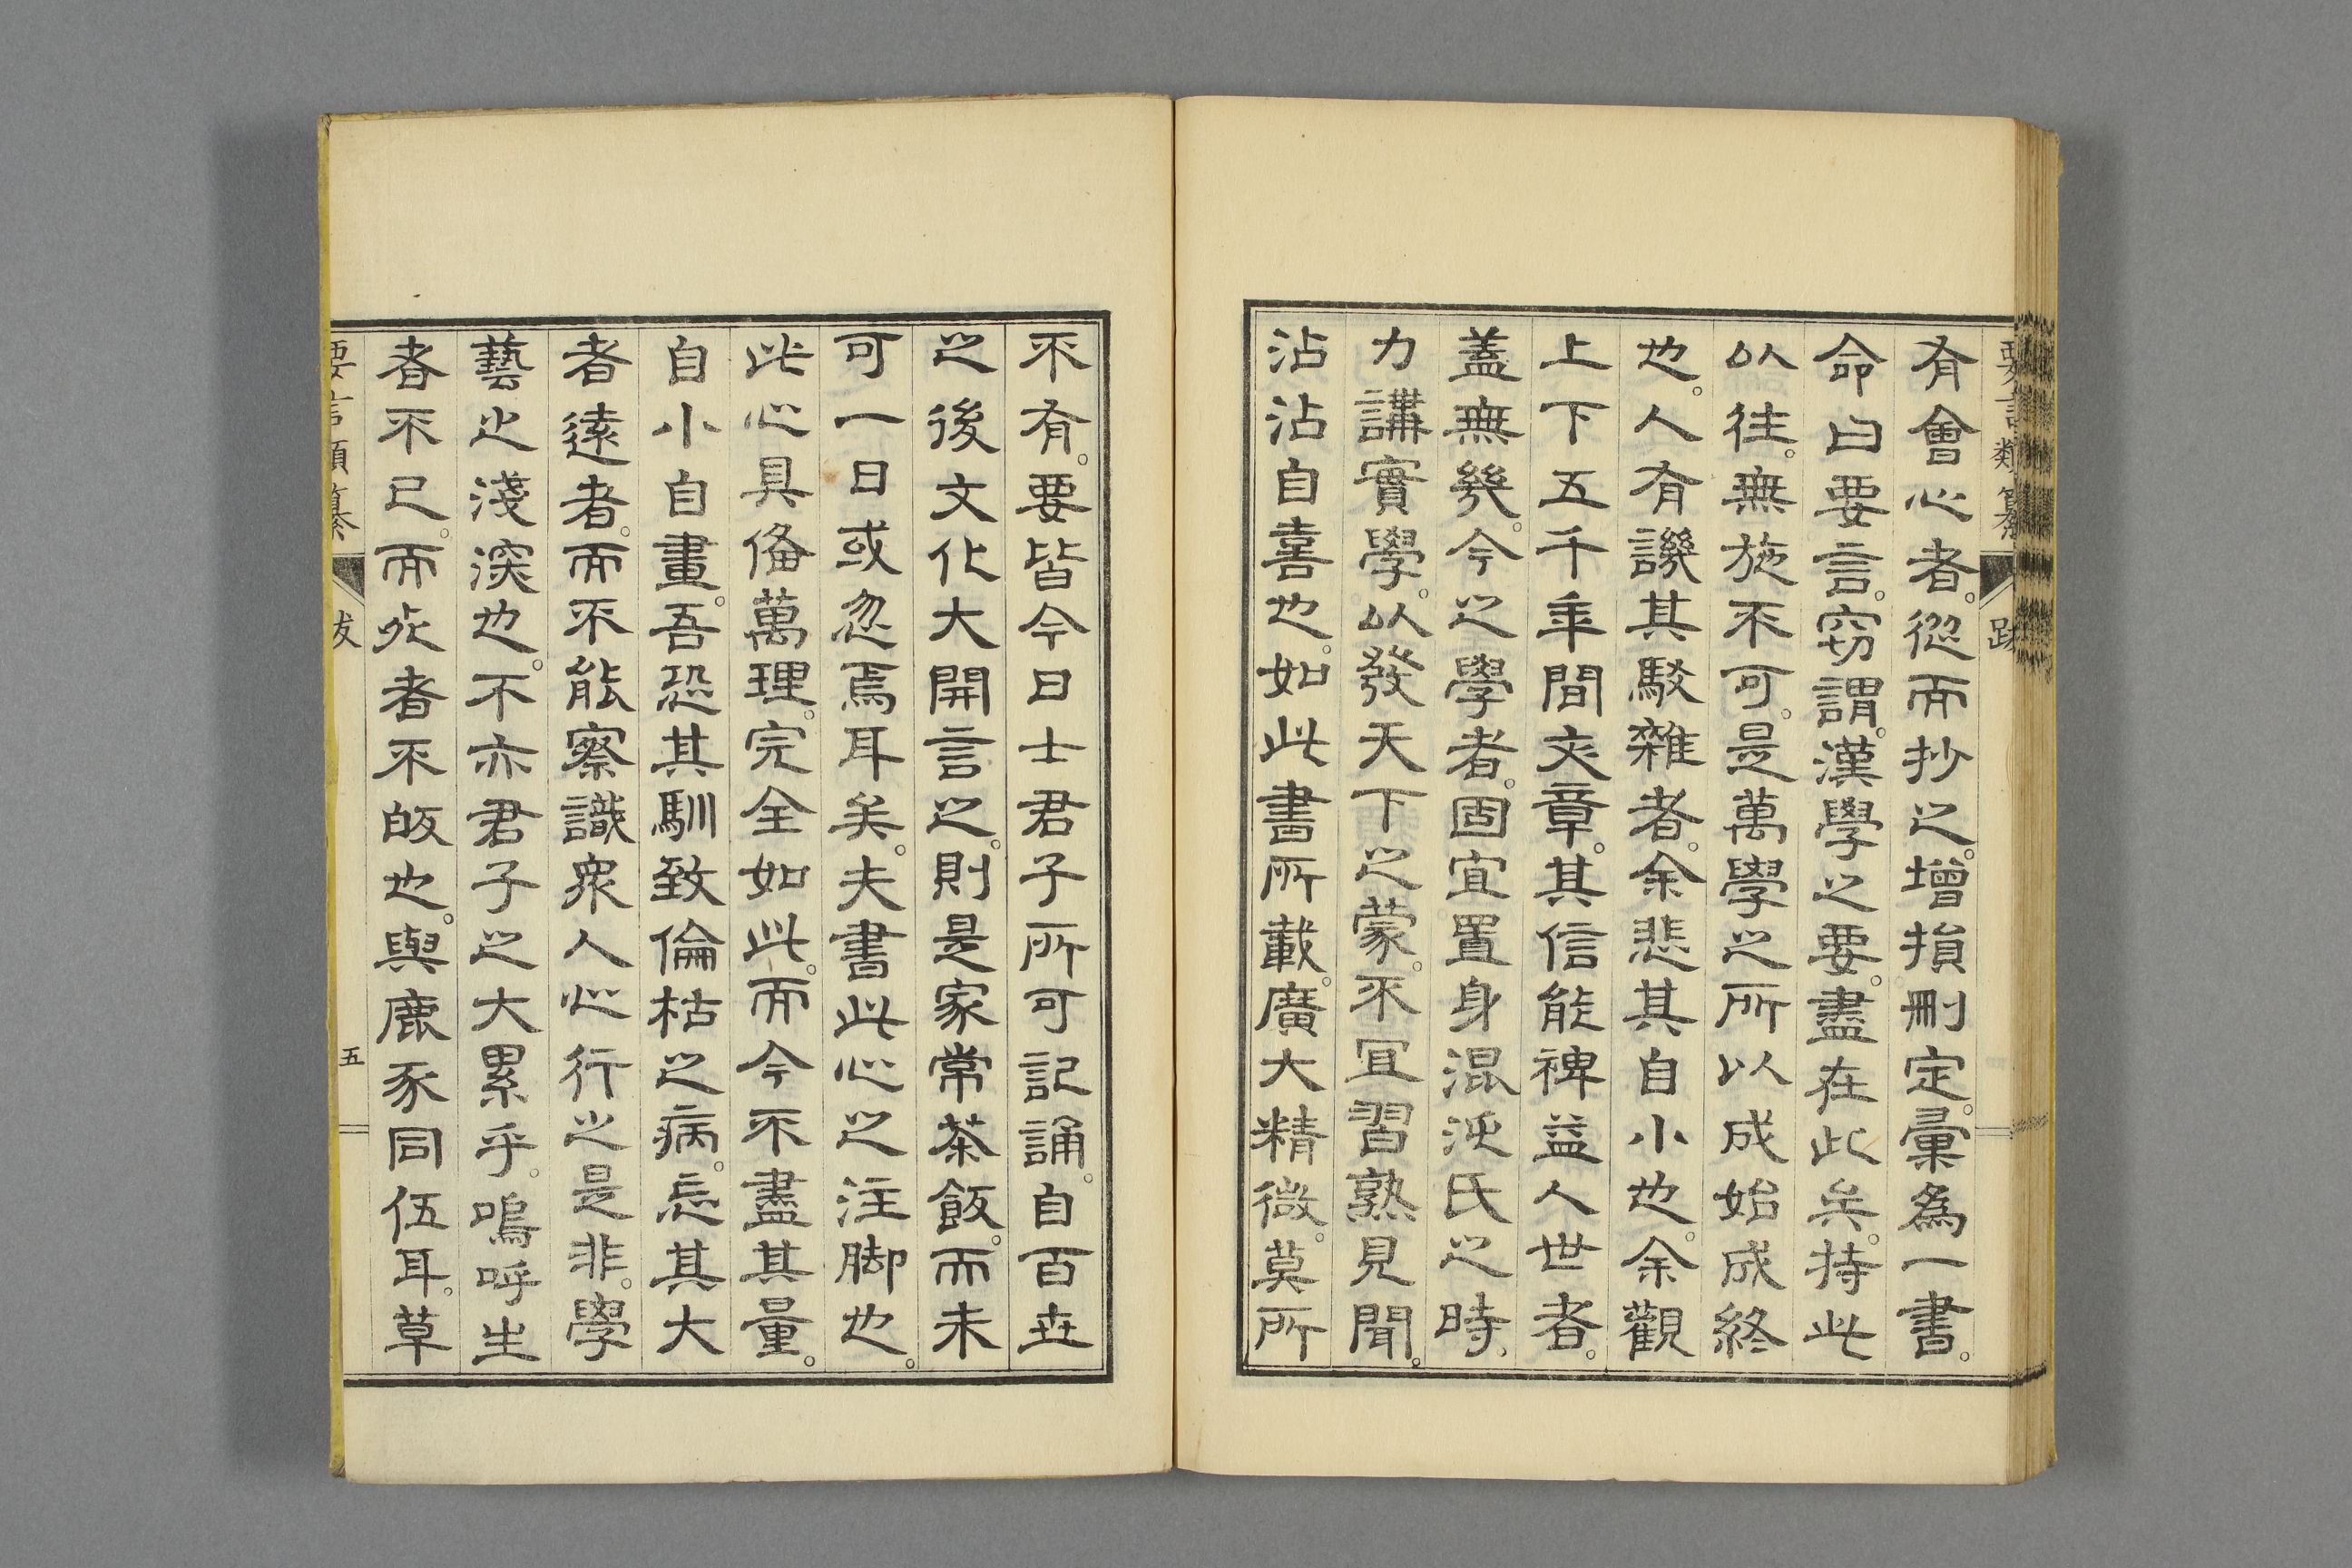 有會心者。從而抄之。增損刪定。彙爲一書。
命曰要言。窃謂。漢學之要。盡在此矣。持此
以往。無施不可。是萬學之所以成始成終
也。人有譏其駁雜者。余悲其自小也。余觀
上下五千年間文章。其信能裨益人世者。
蓋無幾。今之學者。固宜置身混沌氏之時、
力講實學。以發天下之蒙。不宜習熟見聞。
沾沾自喜也。如此書所載。廣大精微。莫所
不有。要皆今日士君子所可記誦。自百世
之後文化大開言之。則是家常茶飯。而未
可一日或忽焉耳矣。夫書此心之注脚也。
此心具備萬理。完全如此。而今不盡其量。
自小自畫。吾恐其馴致偏枯之病。忘其大
者遠者。而不能察識衆人心行之是非。學
藝之淺深也。不亦君子之大累乎。嗚呼生
者不已。而死者不皈也。與鹿豕同伍耳。草
要言類纂
跋
五